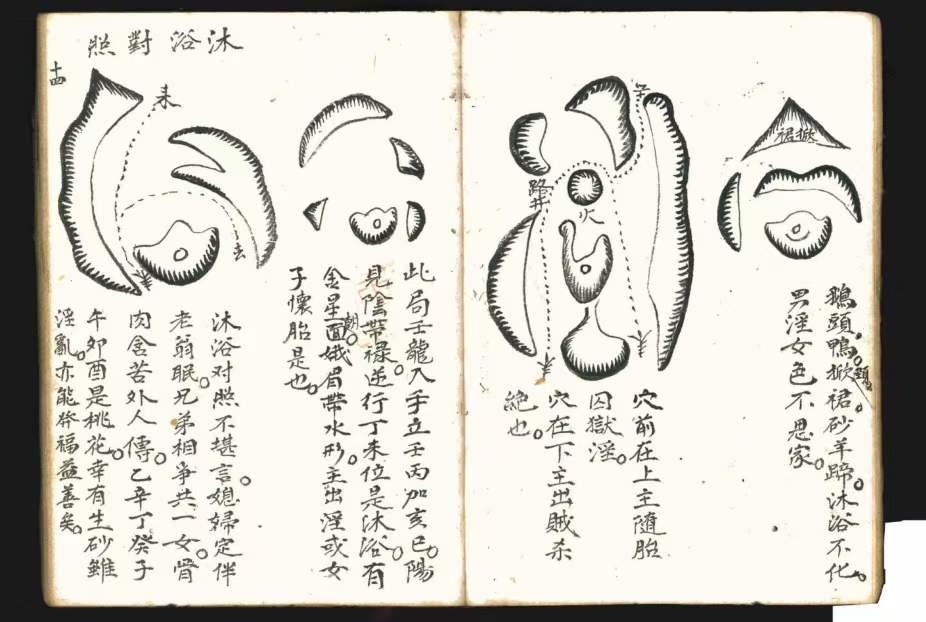 掀裙
鵝頭鴨頸掀裙砂羊蹄沐浴不化
男淫女色不思家
火
路井
穴前在上主隨胎
囚獄淫
穴在下主出賊杀
絕也
此局壬龍入手立壬丙加亥巳陽
見陰帶祿逆行丁未位是沐浴有
金星面朝娥眉帶水形主出淫或女
子懷胎是也
沐浴對照
十四
来
去
沐浴对照不堪言媳婦定伴
老翁眠兄弟相爭共一女骨
肉含苦外人傳乙辛丁癸子
午卯酉是桃花幸有生砂雖
淫亂亦能發福益善矣